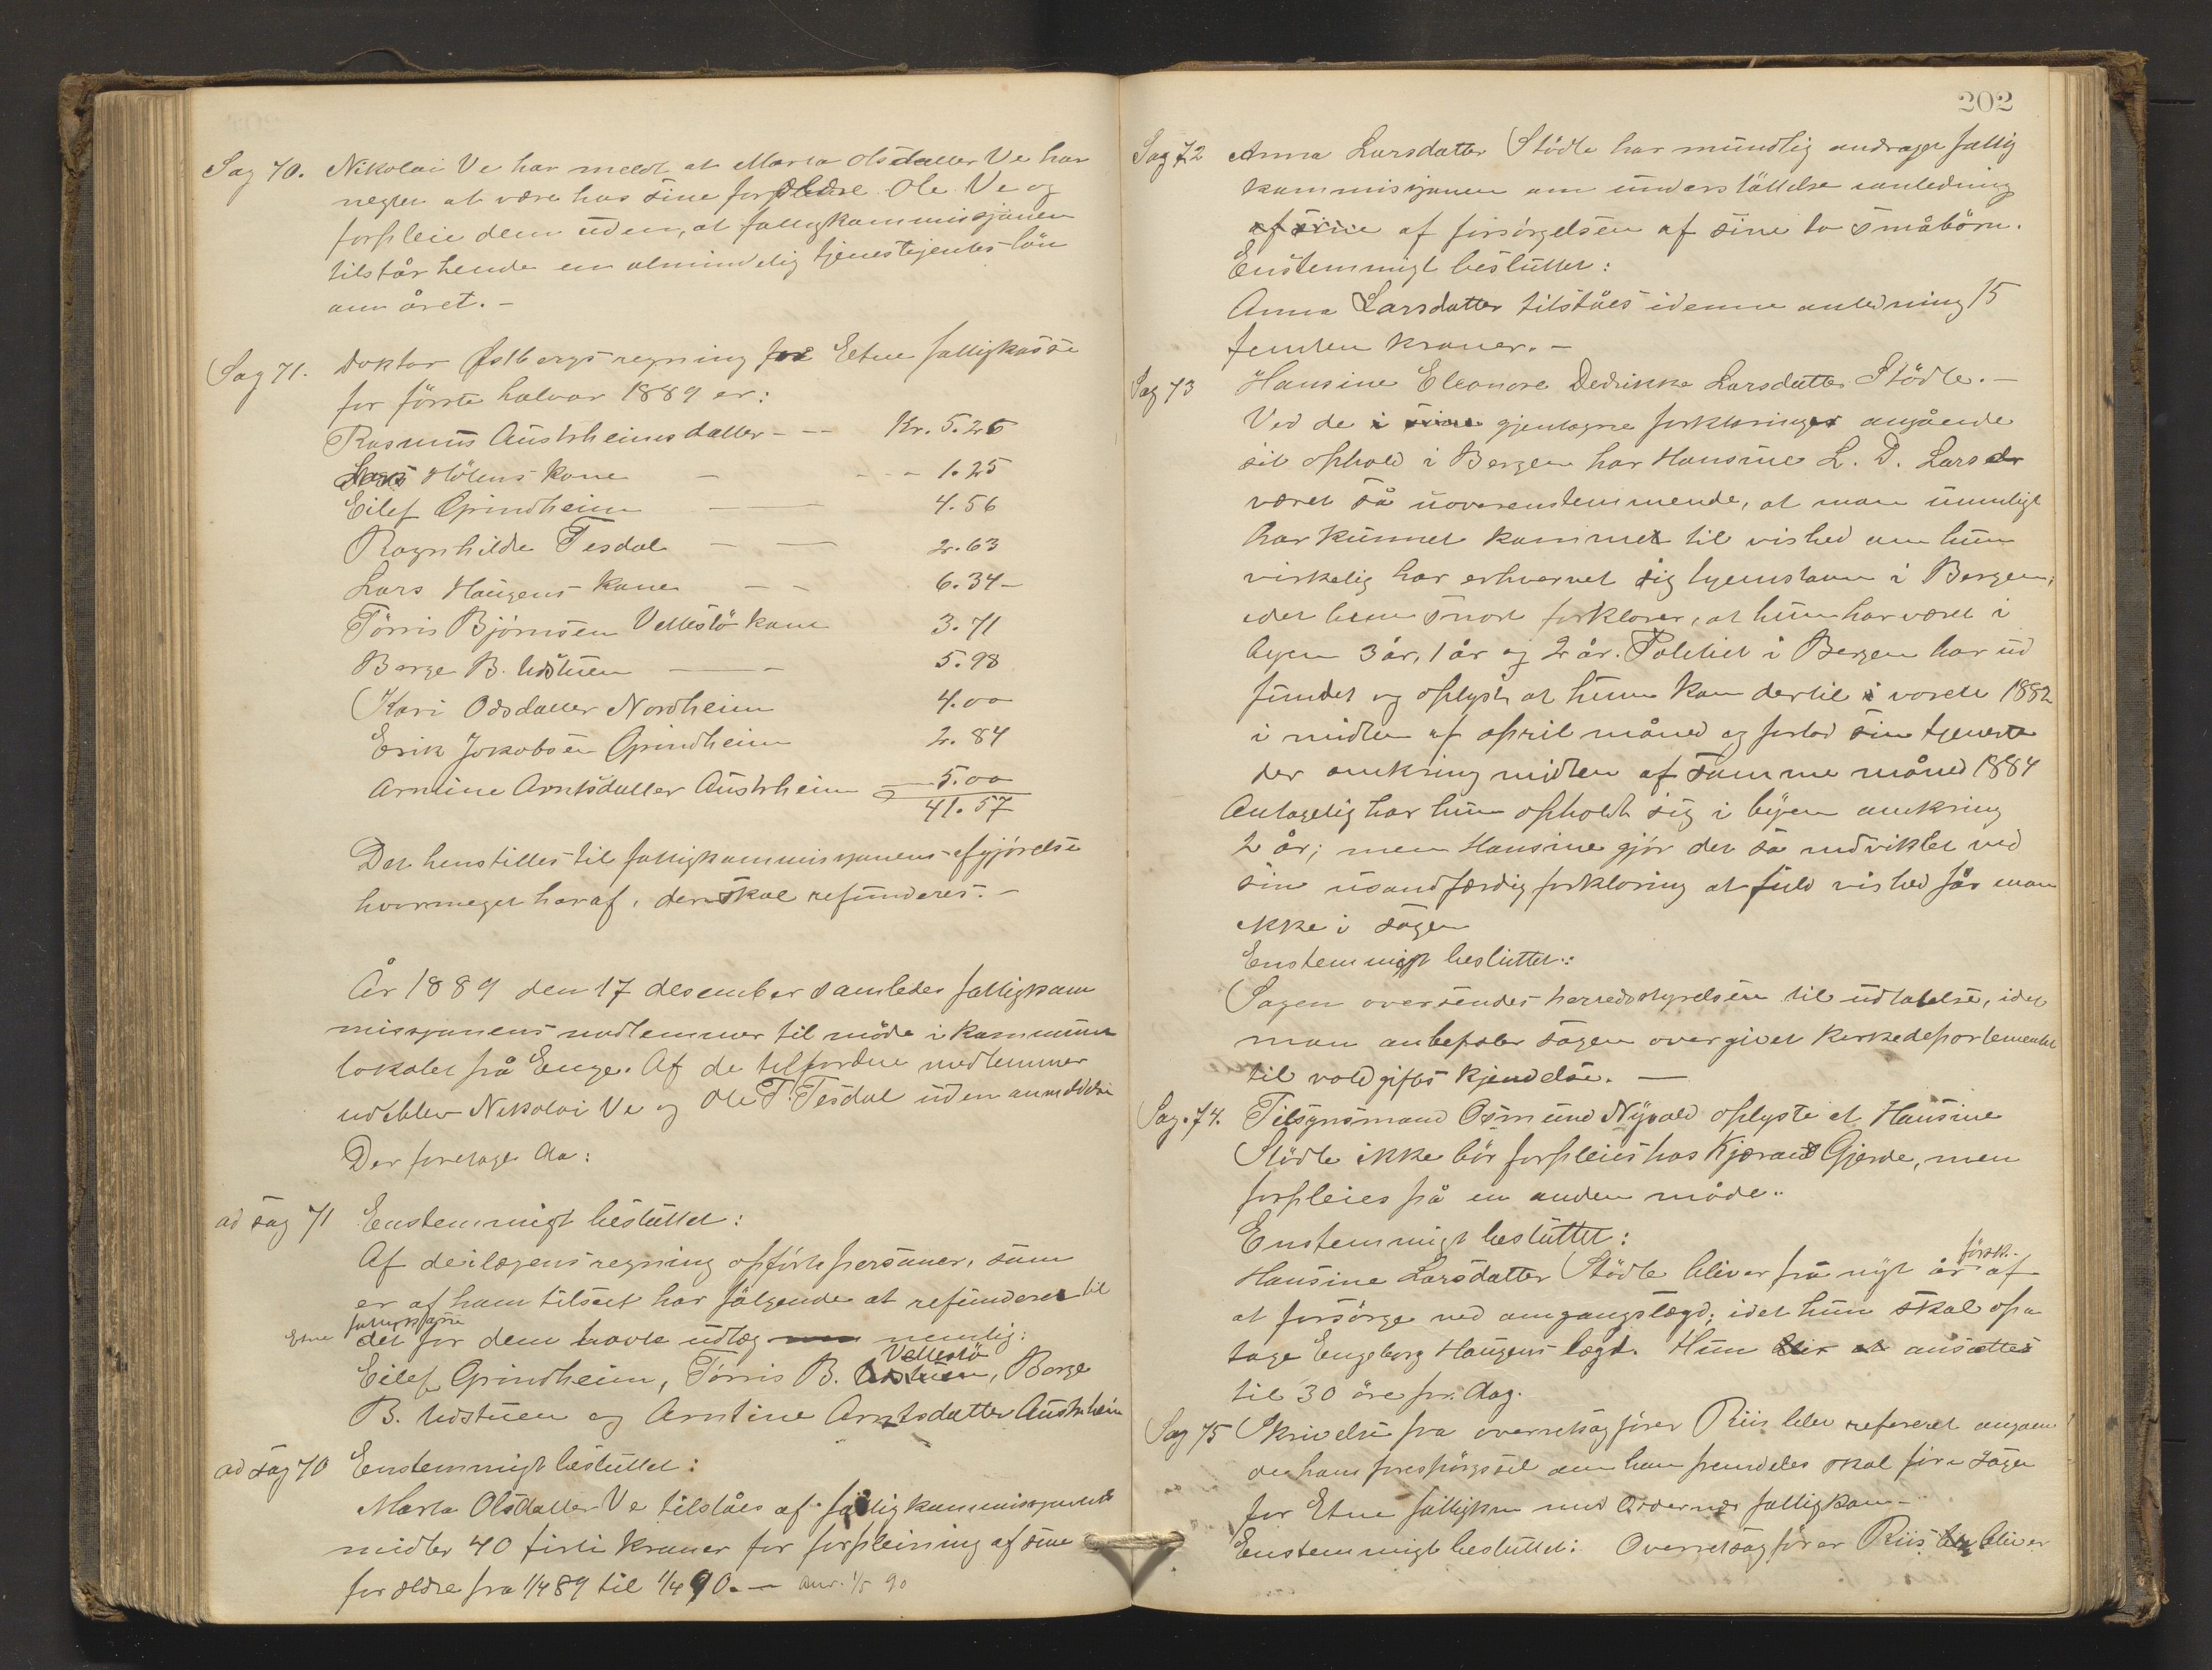 Sag 70. Nikolai Ve har meldt at Marta Olsdatter Ve har
negter at være hos sine forældre Ole Ve og
forpleie dem uden, at fattigkommissjonen
tilstår hende en almindelig tjenestejentes løn
om året. -
Sag 71. Doktor Østbergs regning for Etne fattigkasse
for første halvår 1889 er:
Rasmus Austrheims datter - - - Kr. 5.26
Lars Hölens kone - - - - 1.25
Eilef Grindheim — — 4.56
Ragnhilde Tesdal — — 2.63
Lars Haugens kone - - 6.34 -
Tørris Bjørnsen Vettestö kone 3.71
Børge B. Udstuen — - 5.98
Kari Odsdatter Nordheim 4.00
Erik Jokobsen Grindheim 2.84
Arntine Arntsdatter Austrheim — 5.00
41.57
Det henstilles til fattigkommissjonens afgjörelse
hvormeget heraf, der skal refunderes. -
År 1889 den 17 desember samledes fattigkom
missjonens medlemmer til möde i kommune
lokalet på Enge. Af de tilforordne medlemmer
udeblev Nikolai Ve og Ole T. Tesdal uden anmeldelse
Der foretoges da:
ad sag 71 Enstemmigt besluttet:
Af de i lægens regning opførte personer, som
er af ham tilseet har fölgende at refundere til
Etne fattigkasse
det for dem havte udlæg nemlig:
Vettestö
Eilef Grindheim, Tørris B. Udstuen, Børge
B. Udstuen og Arntine Arntsdatter Austrheim
ad sag 70 Enstemmigt besluttet:
Marta Olsdatter Ve tilståes af fattigkommissjonens
midler 40 firti kroner for forpleining af sine
forældre fra 1/4 89 til 1/4 90. — anv. 1/5 90
202
Sag 72 Anna Larsdatter Stödle har mundlig andraget fattig
kommissjonen om understöttelse i anledning
af sine af forsørgelsen af sine to småbörn.
Enstemmigt besluttet:
Anna Larsdatter tilståes i denne anledning 15
femten kroner. -
Sag 73 Hansine Eleonore Dedrikke Larsdatter Stödle. -
Ved de i sine gjentagne forklaringer angående
sit ophold i Bergen har Hansine L. D. Larsdr
været så uoverenstemmende, at man umuligt
har kunnet kommet til vished om hun
virkelig har erhvervet sig hjemstavn i Bergen,
idet hun snart forklarer, at hun har været i
byen 3 år, 1 år og 2 år. Politiet i Bergen har ud
fundet og oplyst at hun kom dertil i våren 1882
i midten af april måned og forlod sin tjeneste
der omkring midten af samme måned 1884
Antagelig har hun opholdt sig i byen omkring
2 år; men Hansine gjör det så indviklet ved
sin usandfærdig forklaring at fuld vished får man
ikke i sagen
Enstemmigt besluttet:
Sagen oversendes herredsstyrelsen til udtalelse, idet
man anbefaler sagen overgivet kirkedepartementet
til voldgifts kjendelse. —
Sag. 74. Tilsynsmand Osmund Nysvold oplyste at Hansine
Stödle ikke bör forpleies hos Kjerand Gjerde, men
forpleies på en anden måde.
Enstemmigt besluttet:
først
Hansine Larsdatter Stödle bliver fra nyt år af
at forsörge ved omgangslægd; idet hun skal op
tage Engeborg Haugens lægd. Hun blir at ansættes
til 30 öre pr. dag.
Sag 75 Skrivelse fra overretsagfører Riis blev refereret angåen
de hans forespörgssel om han fremdeles skal före sagen
for Etne fattigkom mod fattigkom -
Enstemmigt besluttet: Overretsagfører Riis bliver